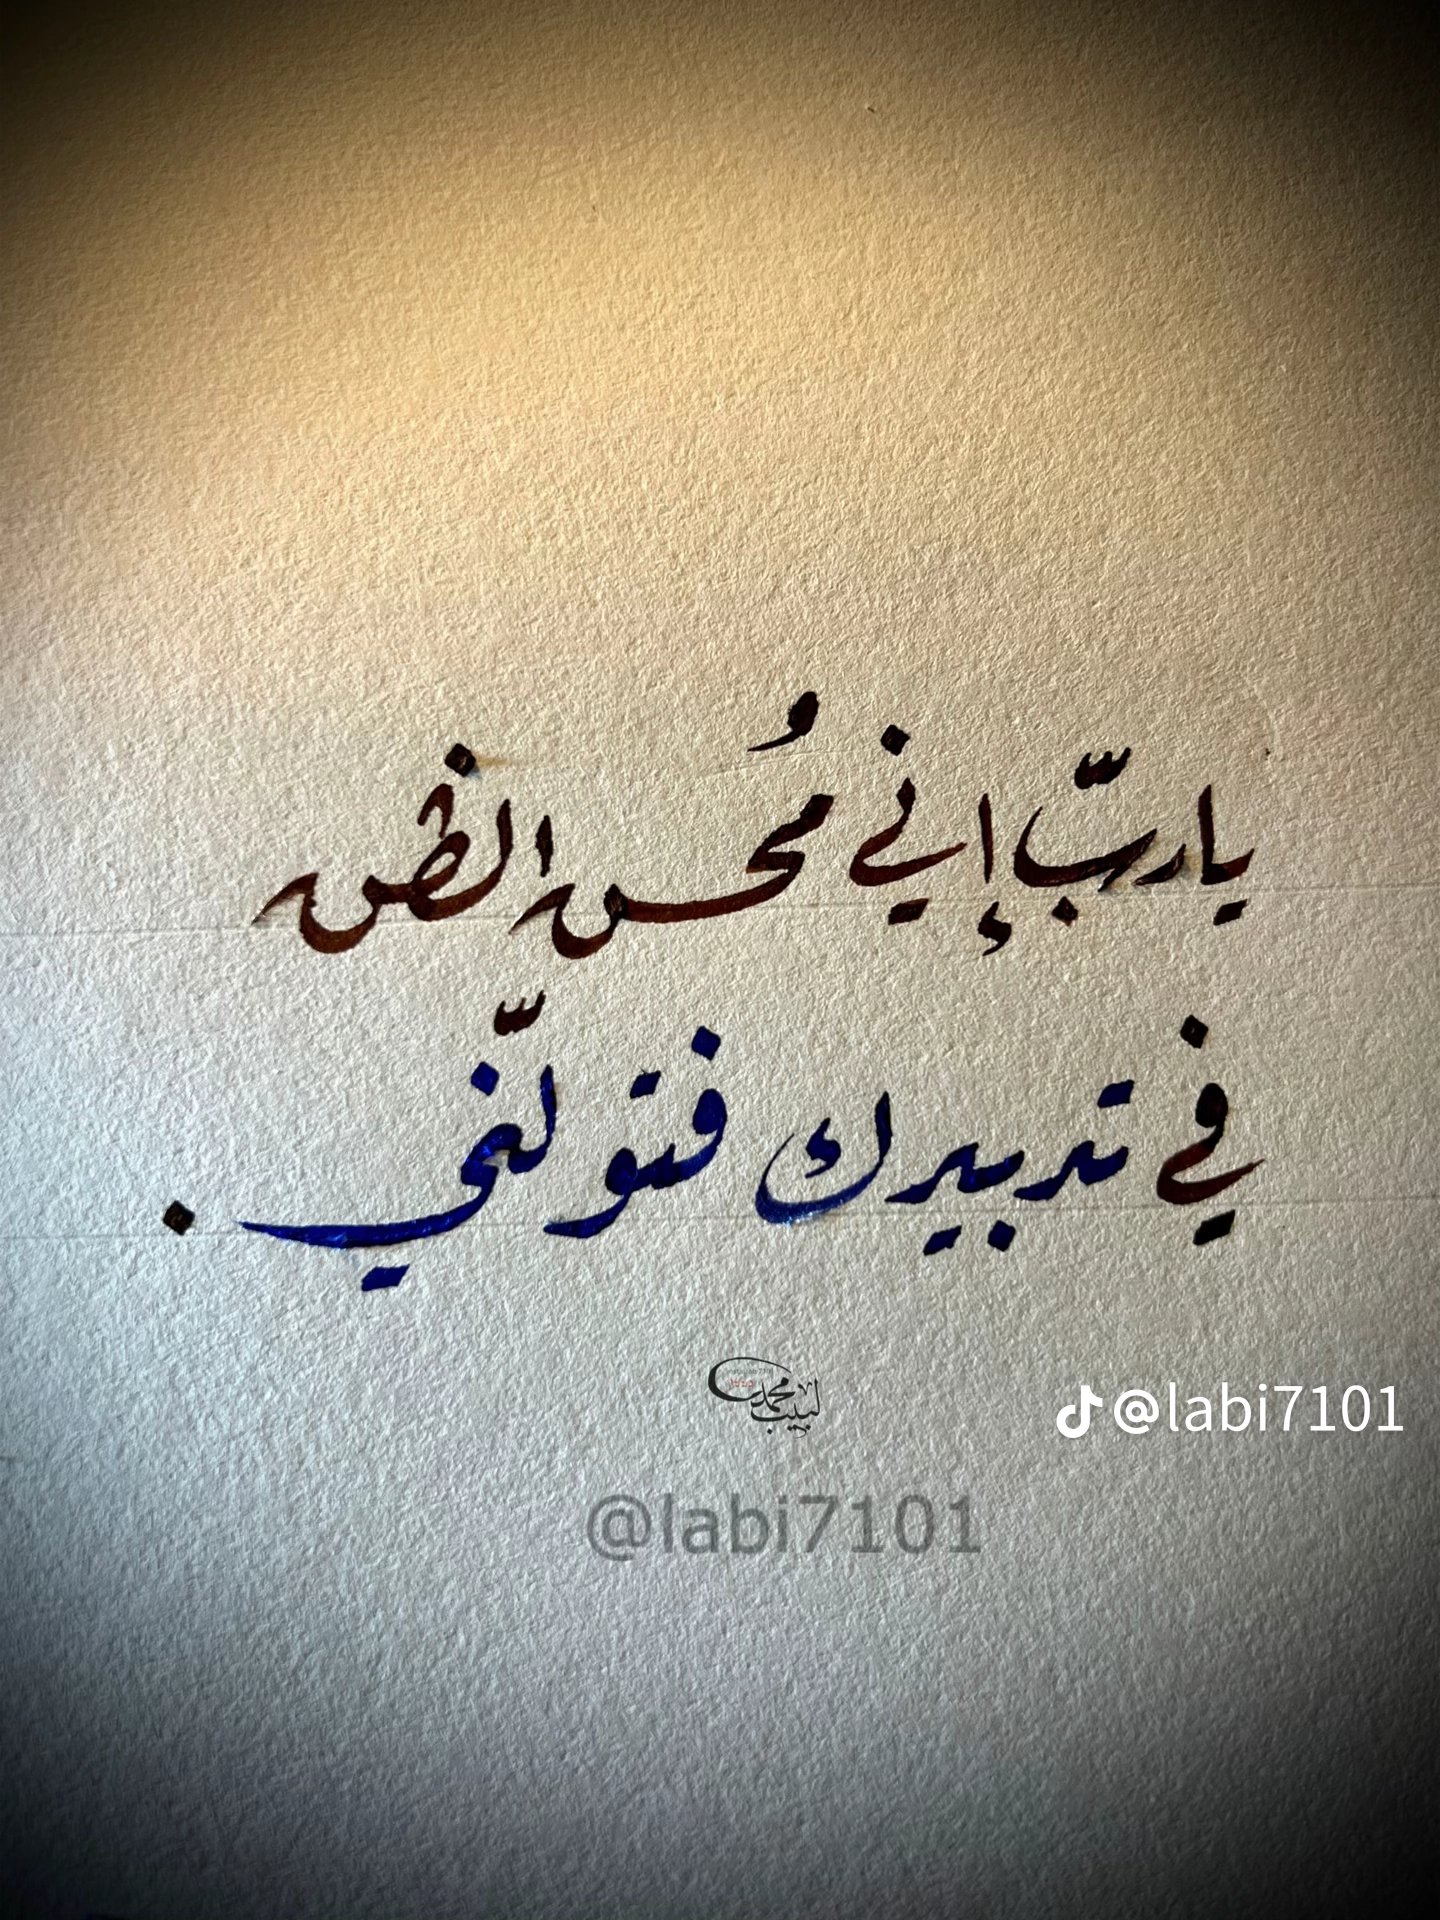 يا ربّ إني مُحسن الظن
في تدبيرك فتولّني .
لبيب محمد
@labi7101
@labi7101